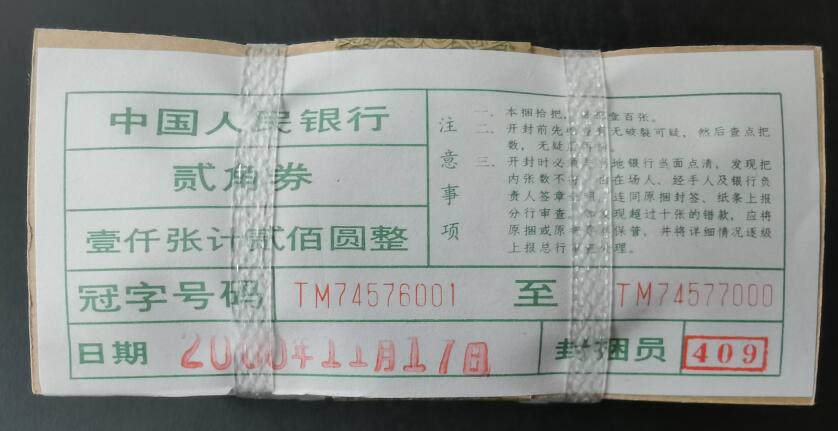 中国人民银行
贰角券
壹仟张计贰佰圆整
注意事项
一、本捆拾把，查百张。
二、开封前先无破裂可疑，然后查点把
数，无疑
三、开封时必须地银行当面点清，发现把
内张数不在场人、经手人及银行负
责人签章，连同原捆封签、纸条上报
分行审查。现超过十张的错款，应将
原捆或原保管，并将详细情况逐级
上报总行处理。
冠字号码 TM74576001 至 TM74577000
日期 2000年11月17日 封捆员 409